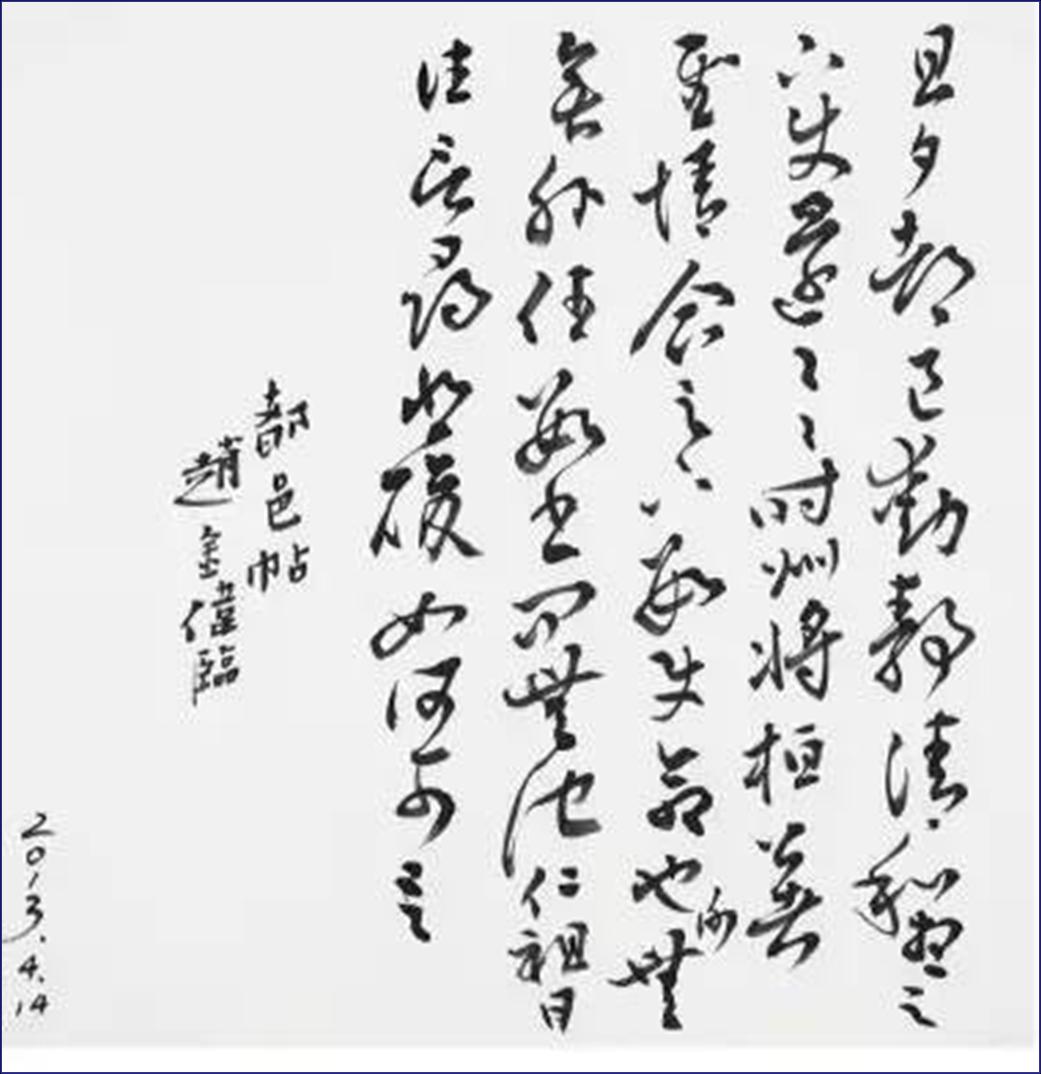 旦夕都邑動靜清和想足
下使還具時州將桓公告
慰情企足下數使命也謝無
奕外任數書問無他仁祖日
往言尋悲酸如何可言
都邑帖
趙金僖臨
2013.4.14